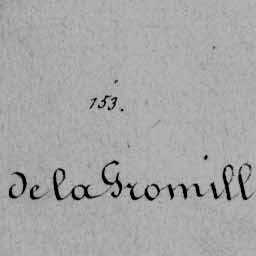 153.
de la Gromill